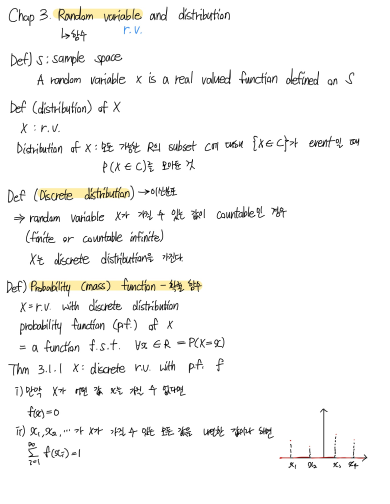 Chap 3. Random variable and distribution
↳함수 r.v.
Def) S : sample space
A random variable X is a real valued function defined on S
Def (distribution) of X
X : r.v.
Distribution of X : 모든 가능한 R의 subset C에 대해 {X ∈ C}가 event일 때
P(X ∈ C)를 모아둔 것
Def (Discrete distribution) → 이산분포
⇒ random variable X가 가질 수 있는 값이 countable인 경우
(finite or countable infinite)
X는 discrete distribution을 가진다
Def) Probability (mass) function - 확률 함수
X = r.v. with discrete distribution
probability function (p.f.) of X
= a function f. s.t. ∀x ∈ R = P(X=x)
Thm 3.1.1 X : discrete r.v. with p.f. f
i) 만약 X가 어떤 값 x를 가질 수 없다면
f(x)=0
ii) x₁, x₂, ⋯ 가 X가 가질 수 있는 모든 값을 나열한 값이라 하면
∑_{i=1}^{∞} f(xᵢ)=1
x₁ x₂ x₃ x₄